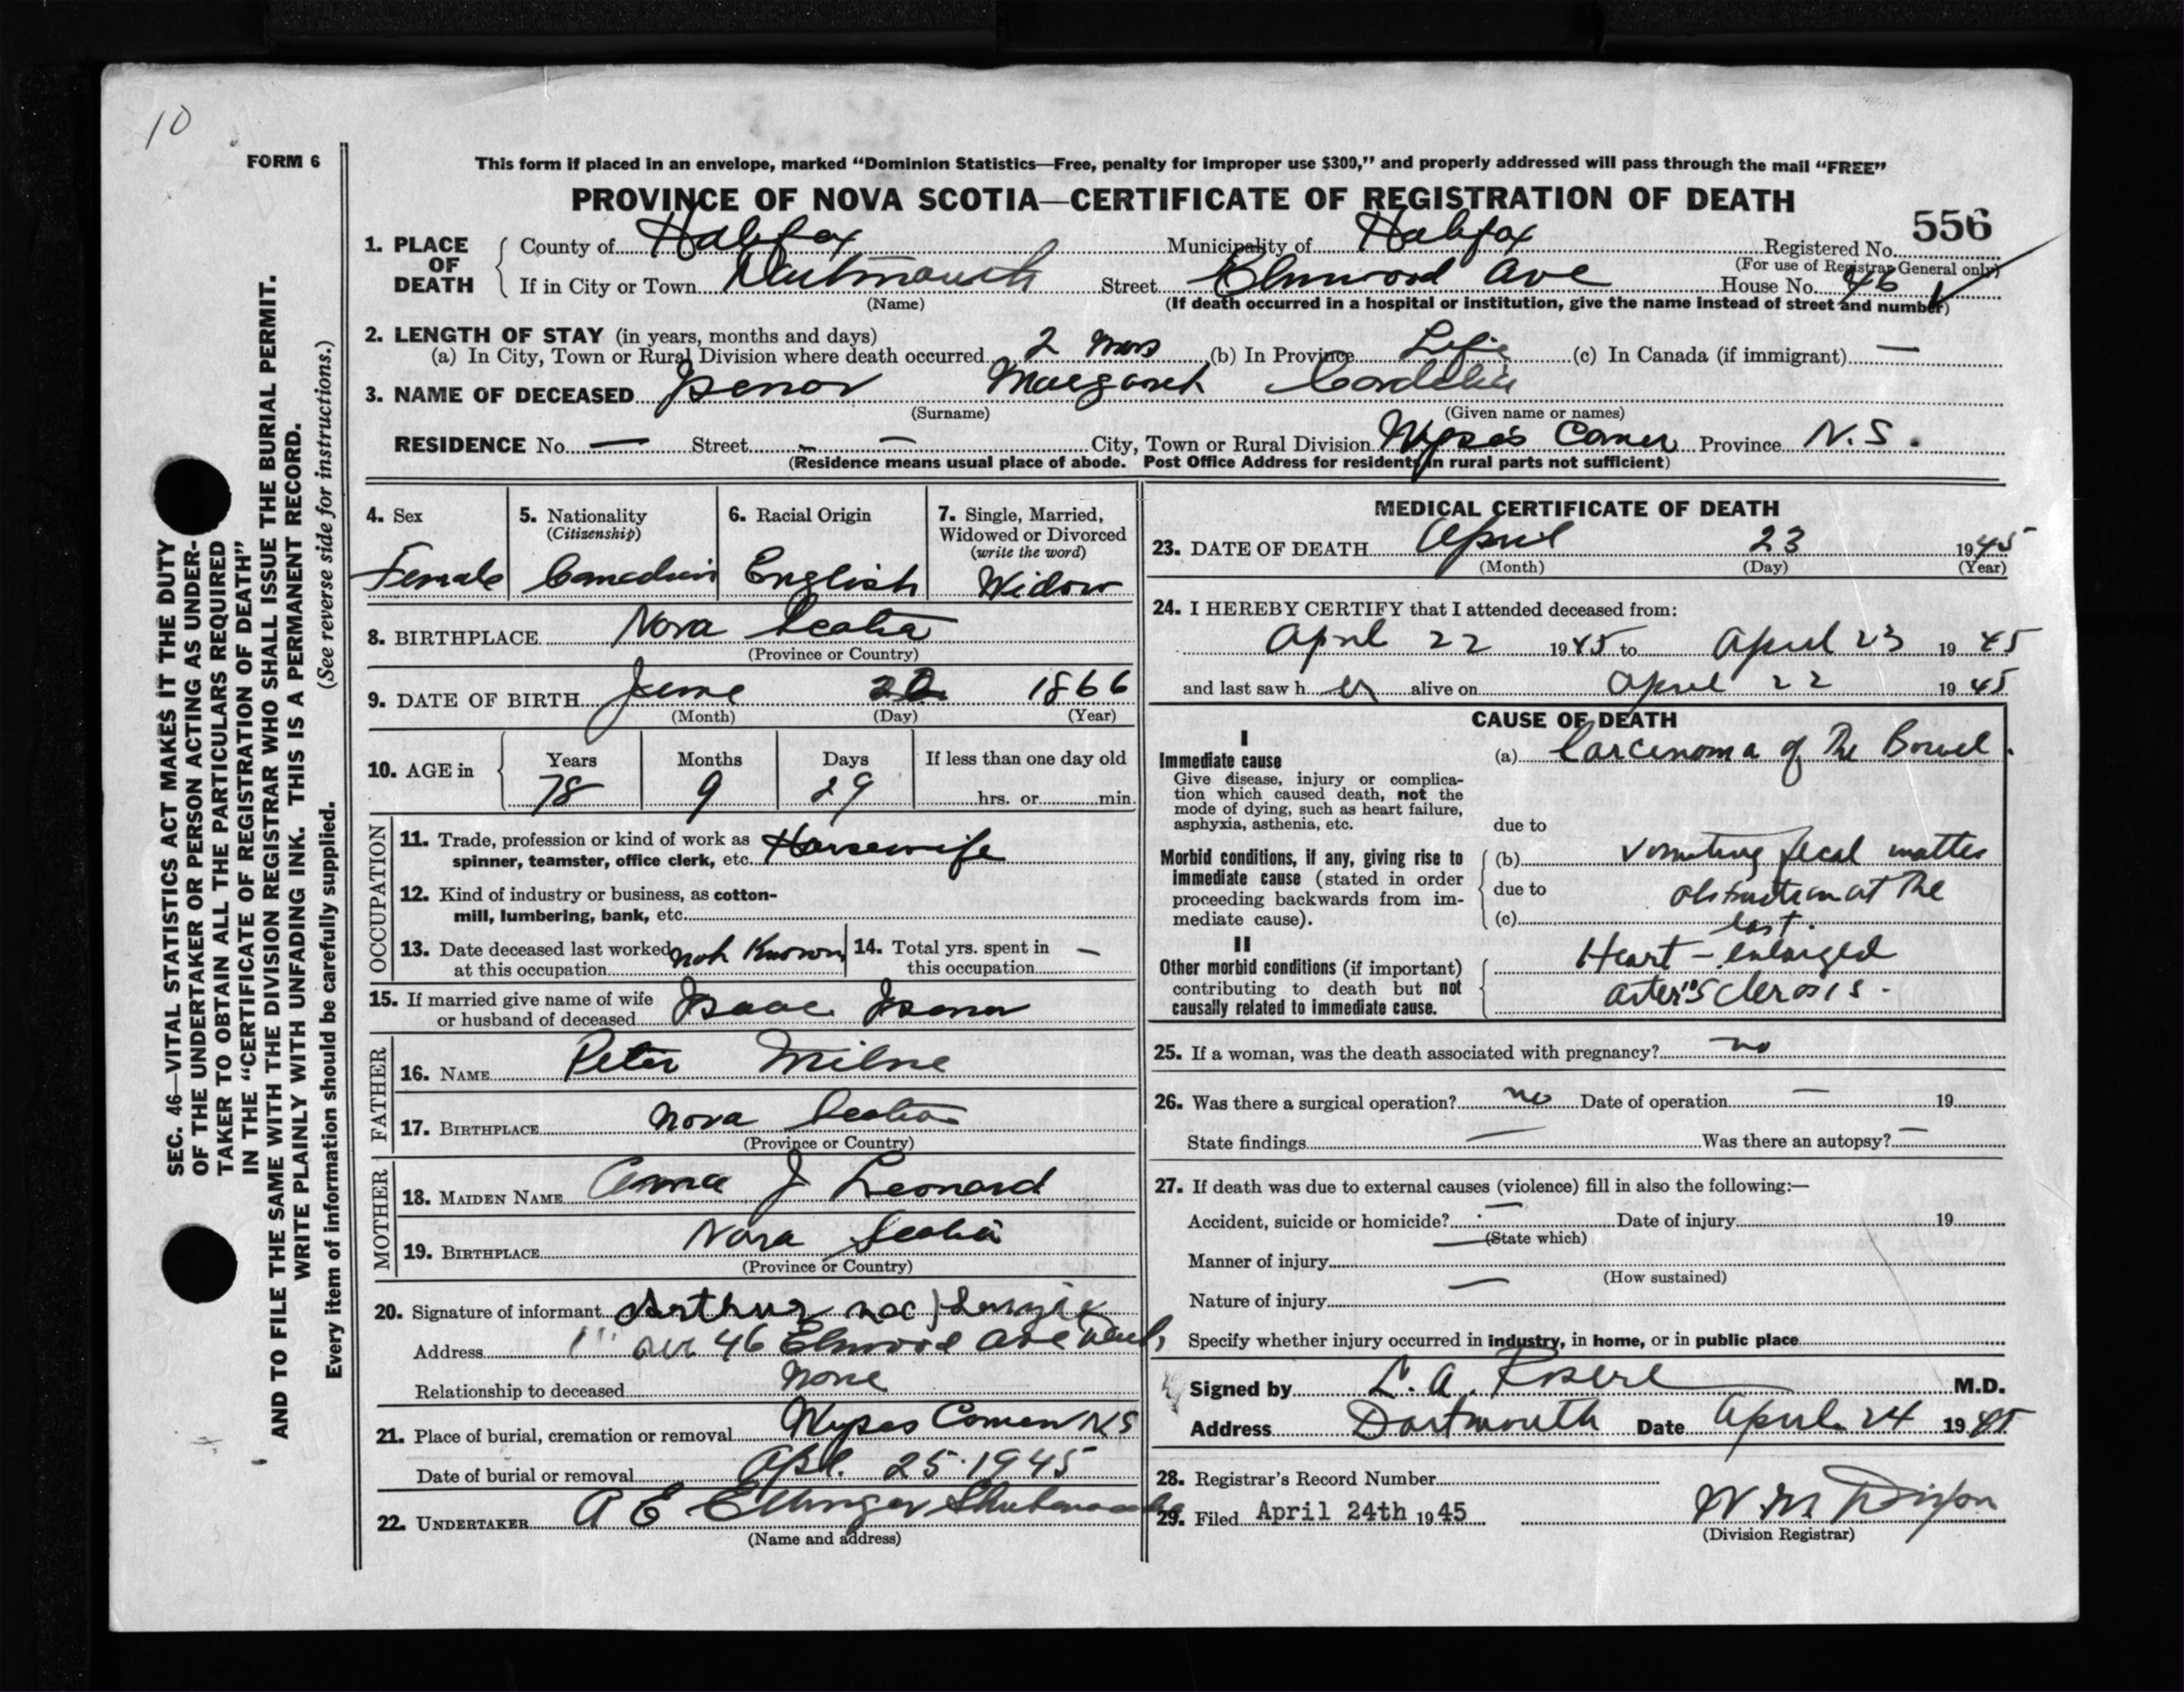 10
FORM 6
This form if placed in an envelope, marked “Dominion Statistics—Free, penalty for improper use $300,” and properly addressed will pass through the mail “FREE”
PROVINCE OF NOVA SCOTIA—CERTIFICATE OF REGISTRATION OF DEATH
556
1. PLACE OF DEATH County of Halifax Municipality of Halifax Registered No.
(For use of Registrar General only)
If in City or Town Dartmouth Street Elmwood Ave House No. 46
(Name) (If death occurred in a hospital or institution, give the name instead of street and number)
2. LENGTH OF STAY (in years, months and days)
(a) In City, Town or Rural Division where death occurred 2 mos (b) In Province Life (c) In Canada (if immigrant) —
3. NAME OF DECEASED Isenor Margaret Cordelia
(Surname) (Given name or names)
RESIDENCE No. — Street — City, Town or Rural Division Wyse's Corner Province N.S.
(Residence means usual place of abode. Post Office Address for residents in rural parts not sufficient)
4. Sex 5. Nationality 6. Racial Origin 7. Single, Married,
(Citizenship) Widowed or Divorced
(write the word)
Female Canadian English Widow
8. BIRTHPLACE Nova Scotia
(Province or Country)
9. DATE OF BIRTH June 1866
(Month) (Day) (Year)
10. AGE in Years Months Days If less than one day old
78 9 29 hrs. or min.
OCCUPATION
11. Trade, profession or kind of work as
spinner, teamster, office clerk, etc. Housewife
12. Kind of industry or business, as cotton-
mill, lumbering, bank, etc.
13. Date deceased last worked not Known 14. Total yrs. spent in —
at this occupation this occupation
15. If married give name of wife
or husband of deceased Isaac Isenor
FATHER
16. NAME Peter Milne
17. BIRTHPLACE Nova Scotia
(Province or Country)
MOTHER
18. MAIDEN NAME Anna J Leonard
19. BIRTHPLACE Nova Scotia
(Province or Country)
20. Signature of informant Arthur
Address 46 Elmwood Ave
Relationship to deceased None
21. Place of burial, cremation or removal Wyses Corner NS
Date of burial or removal Apl. 25. 1945
22. UNDERTAKER A E Ettinger Shubenacadie
(Name and address)
MEDICAL CERTIFICATE OF DEATH
23. DATE OF DEATH April 23 1945
(Month) (Day) (Year)
24. I HEREBY CERTIFY that I attended deceased from:
April 22 1945 to April 23 1945
and last saw her alive on April 22 1945
CAUSE OF DEATH
I
Immediate cause (a) Carcinoma of the Bowel.
Give disease, injury or complica-
tion which caused death, not the
mode of dying, such as heart failure,
asphyxia, asthenia, etc. due to
Morbid conditions, if any, giving rise to (b) vomiting fecal matter
immediate cause (stated in order due to obstruction at the
proceeding backwards from im-
mediate cause). (c) last.
II Heart - enlarged
Other morbid conditions (if important)
contributing to death but not arteriosclerosis.
causally related to immediate cause.
25. If a woman, was the death associated with pregnancy? no
26. Was there a surgical operation? no Date of operation — 19
State findings — Was there an autopsy? —
27. If death was due to external causes (violence) fill in also the following:—
Accident, suicide or homicide? — Date of injury 19
(State which)
Manner of injury —
(How sustained)
Nature of injury —
Specify whether injury occurred in industry, in home, or in public place
Signed by M.D.
Address Dartmouth Date April 24 1945
28. Registrar's Record Number
29. Filed April 24th 1945 W M Dixon
(Division Registrar)
SEC. 46—VITAL STATISTICS ACT MAKES IT THE DUTY
OF THE UNDERTAKER OR PERSON ACTING AS UNDER-
TAKER TO OBTAIN ALL THE PARTICULARS REQUIRED
IN THE “CERTIFICATE OF REGISTRATION OF DEATH”
AND TO FILE THE SAME WITH THE DIVISION REGISTRAR WHO SHALL ISSUE THE BURIAL PERMIT.
WRITE PLAINLY WITH UNFADING INK. THIS IS A PERMANENT RECORD.
Every item of information should be carefully supplied. (See reverse side for instructions.)